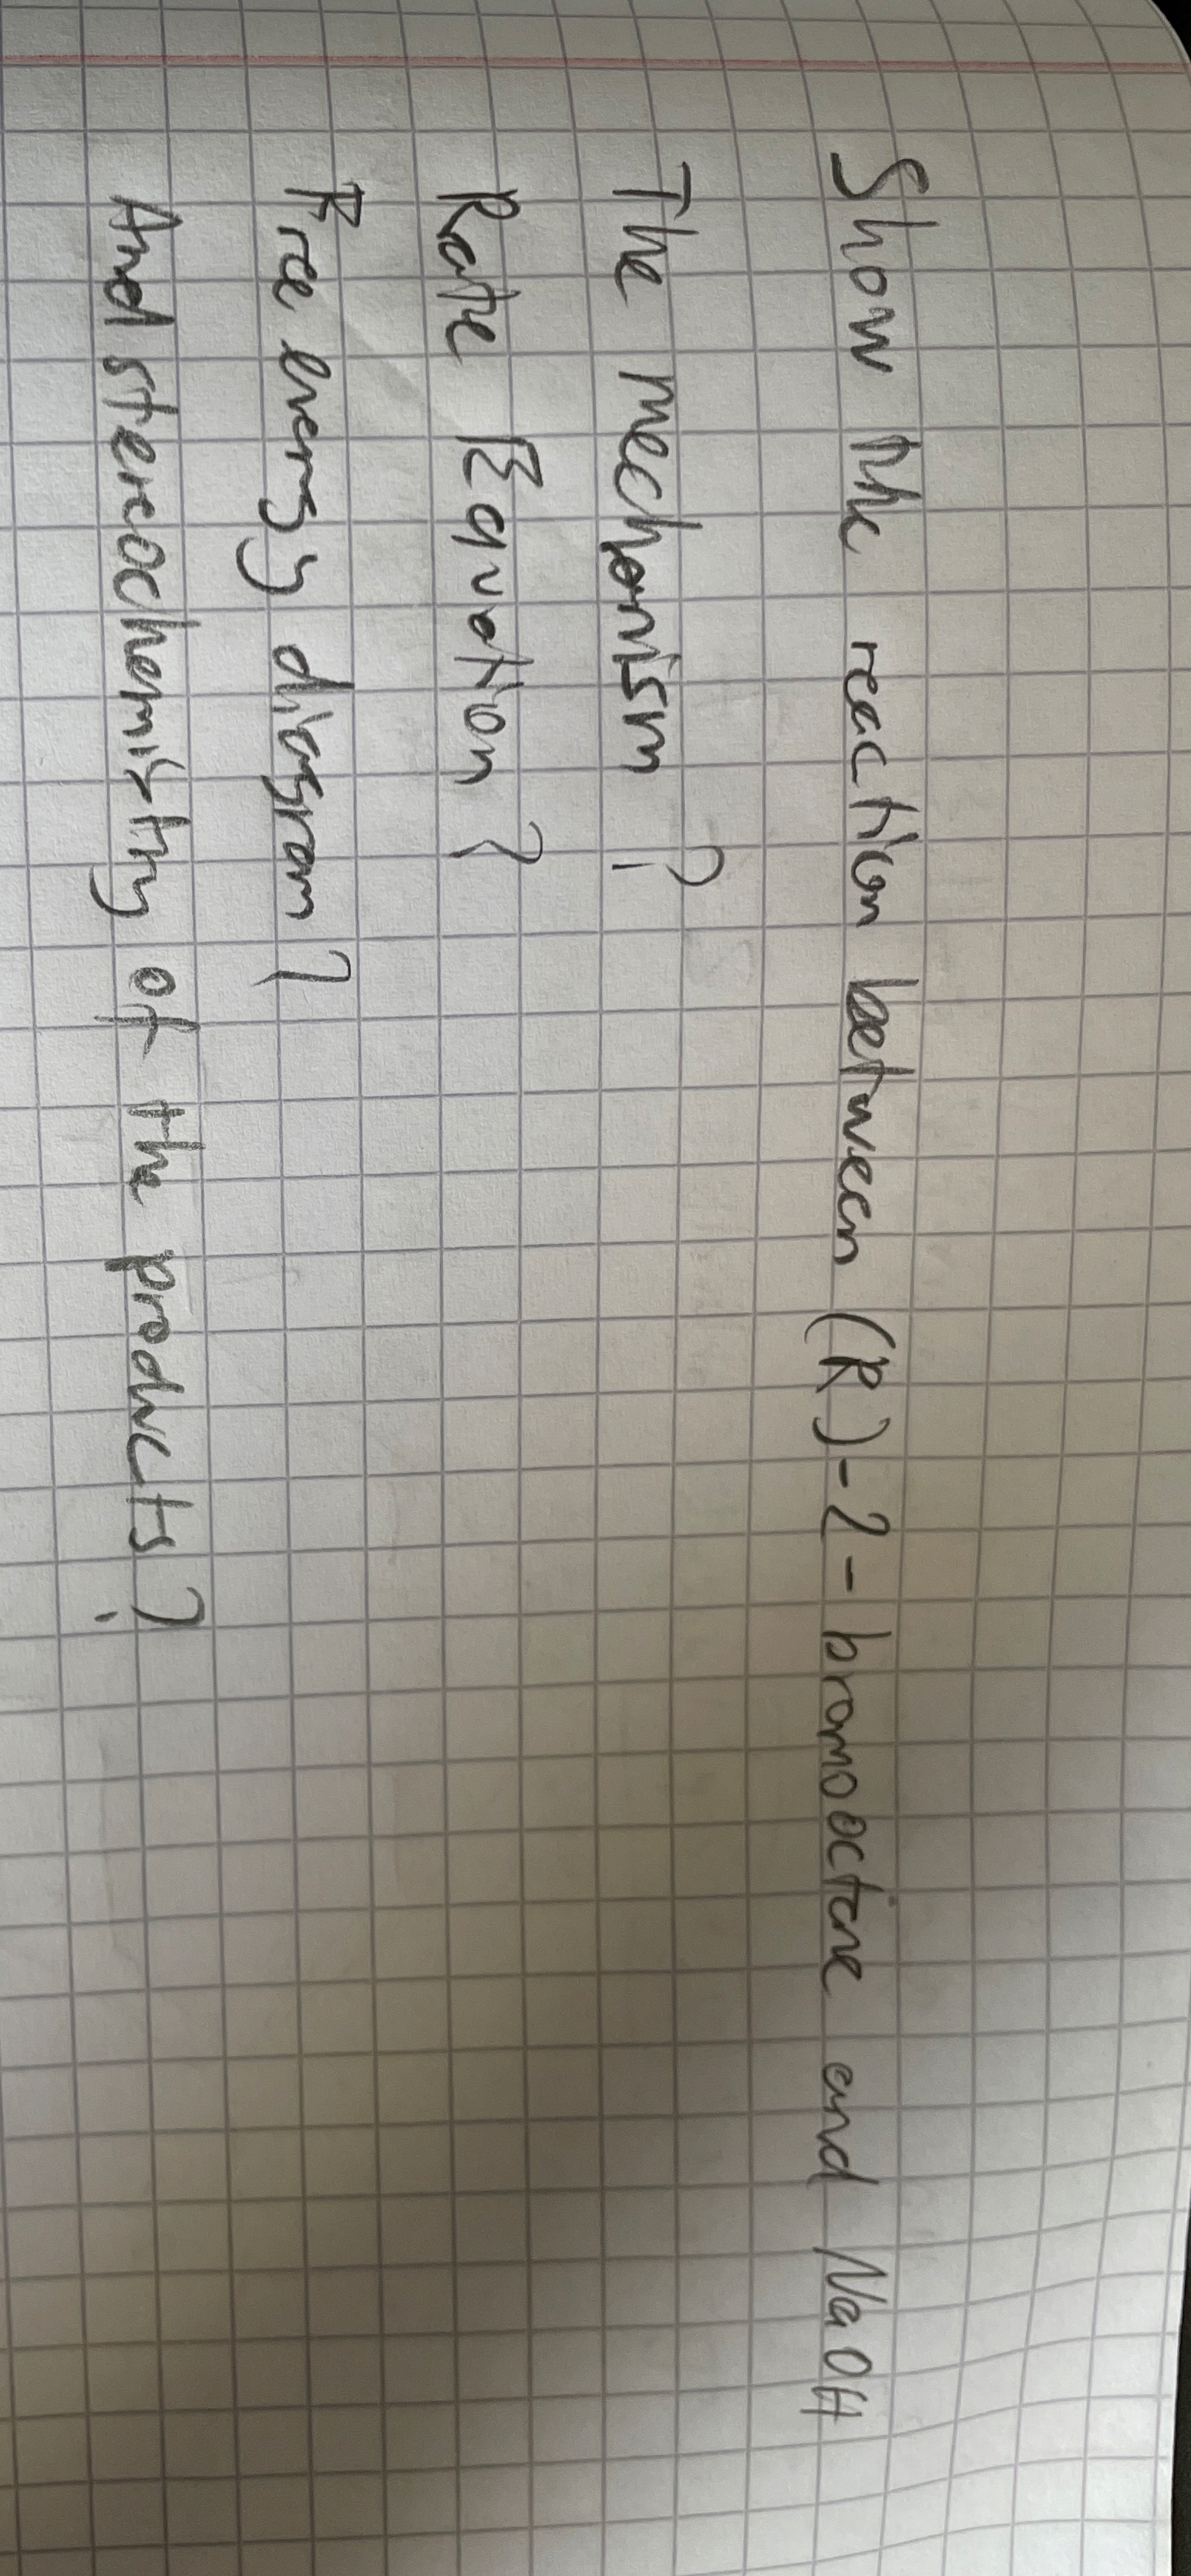 Show the reaction between (R)-2-bromooctane and NaOH
The mechanism ?
Rate Equation ?
Free energy diagram ?
And stereochemistry of the products ?